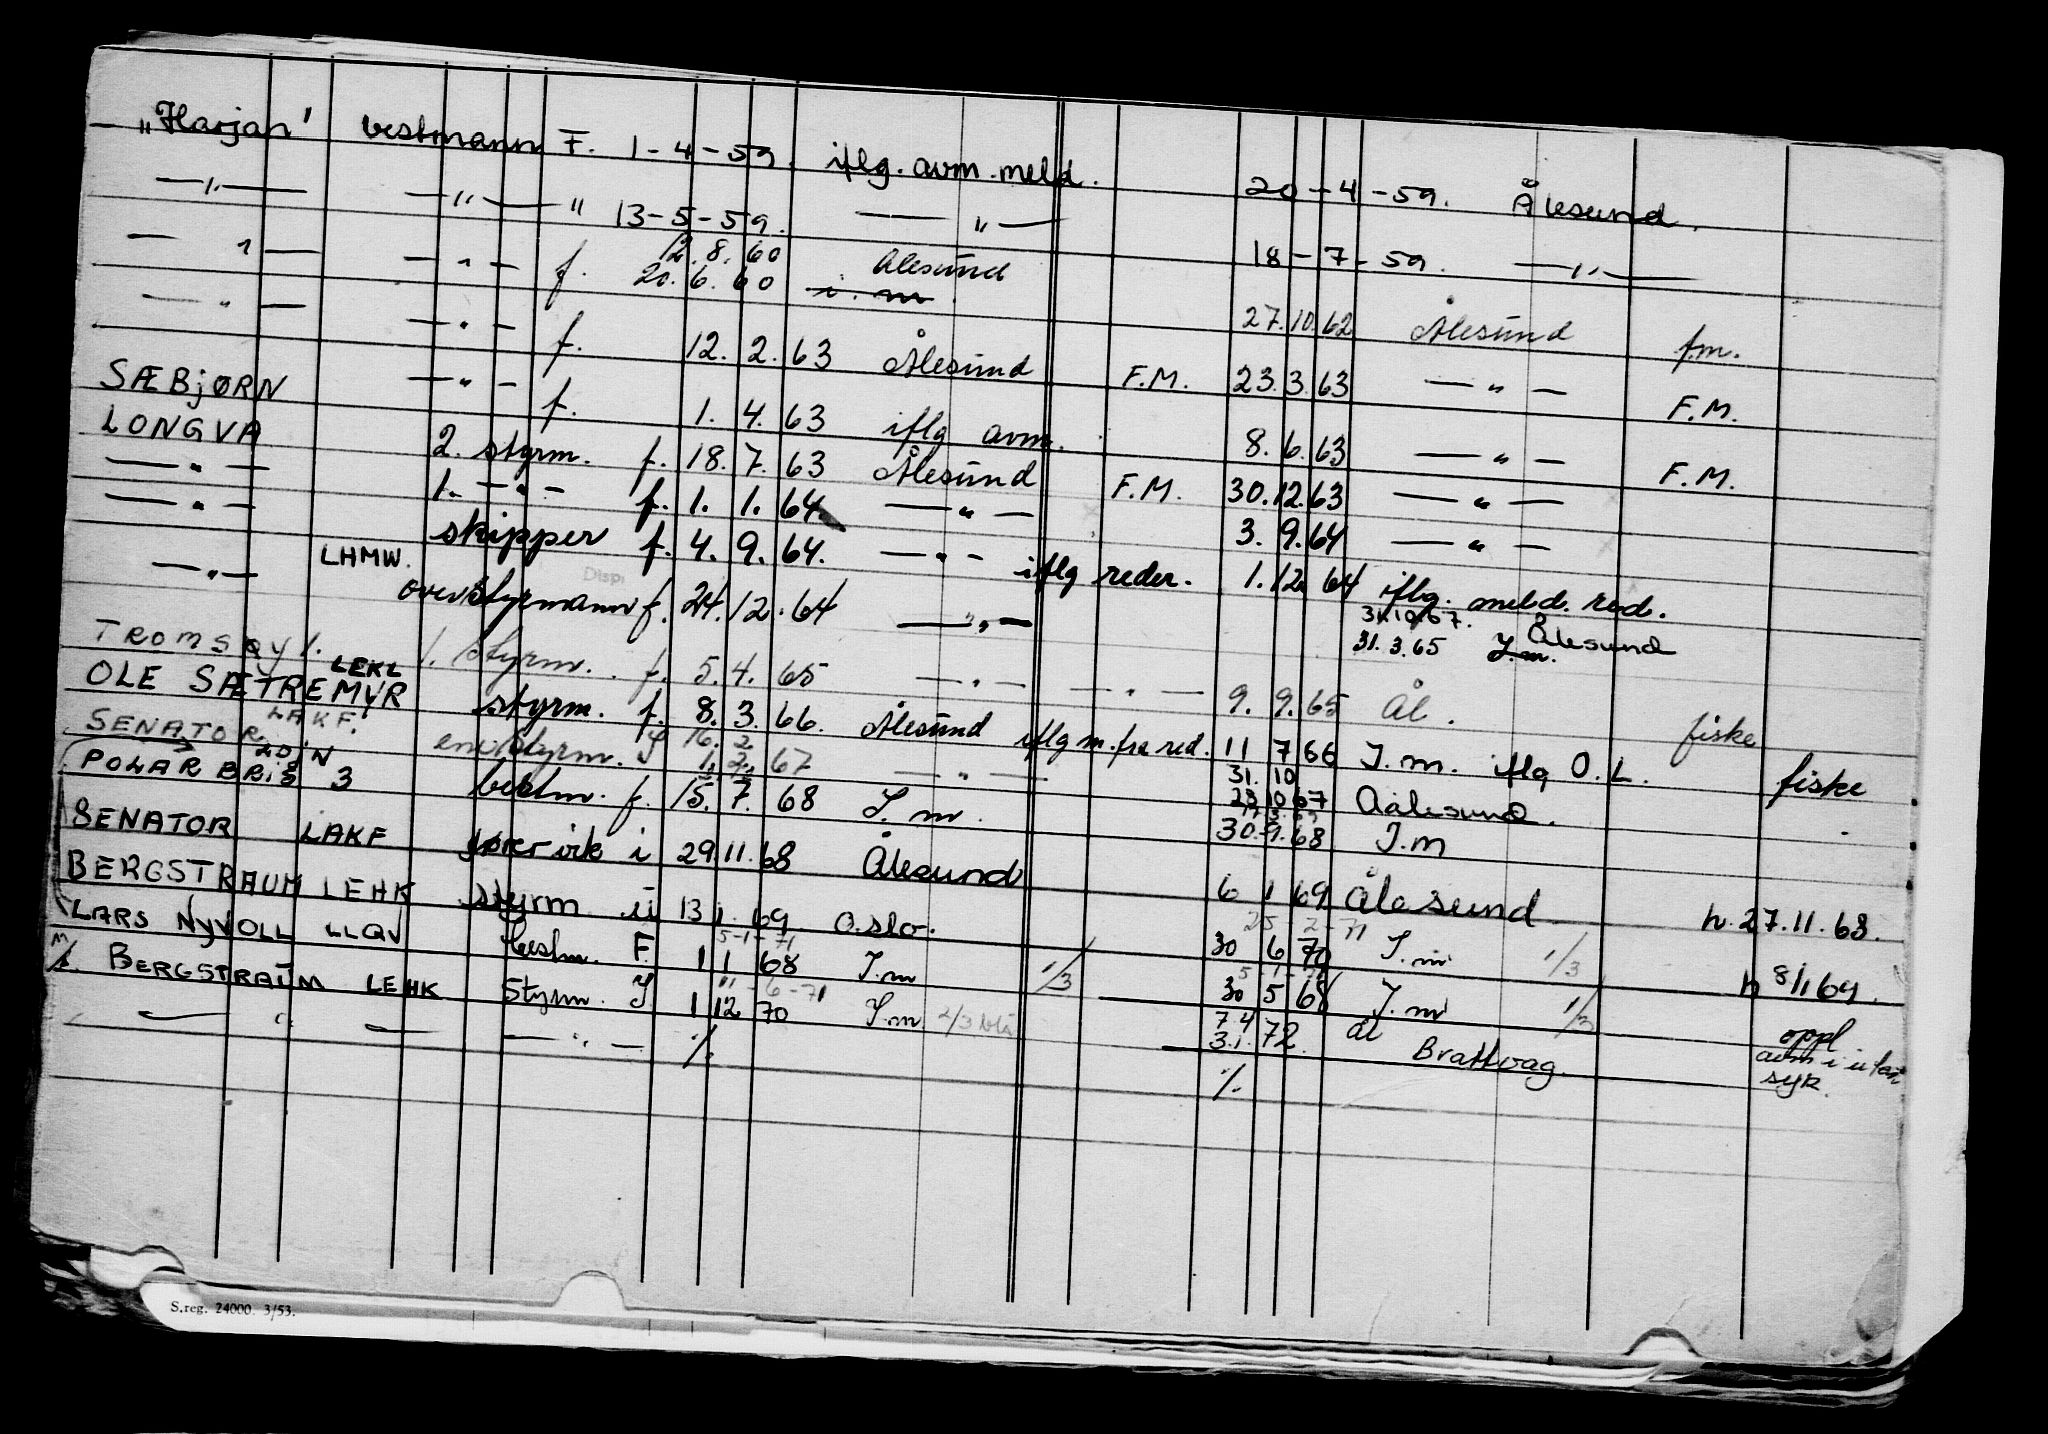 „Harjan" bestmann F. 1-4-59. iflg. avm. meld. 20-4-59. Ålesund.
—"— —"— " 13-5-59. —"— 18-7-59. —"—
—"— —"— f. 12.8.60 Ålesund 27.10.62 Ålesund fm.
20.6.60 i.m.
—"— —"— f. 12.2.63 Ålesund F.M. 23.3.63 —"— F.M.
SÆBJØRN —"— f. 1.4.63 iflg avm. 8.6.63 —"— F.M.
LONGVA 2. styrm. f. 18.7.63 Ålesund F.M. 30.12.63 —"—
—"— 1. —"— f. 1.1.64. —"— 3.9.64 —"—
—"— skipper f. 4.9.64. —"— iflg reder. 1.12.64 iflg. meld. red.
—"— LHMW. overstyrmann f. 24.12.64 —"— 31.10.67. Ålesund
31.3.65 I.m.
TROMSØY 1. 1. styrm. f. 5.4.65 —"— —"— 9.9.65 Ål. fiske
OLE SÆTREMYR LEKL styrm. f. 8.3.66. Ålesund iflg m. fra red. 11 7 66 I.m. iflg O.L. fiske
SENATOR LAKF. styrm. 16.2.
1.2.67 —"— 31.10
28 10 67 Aalesund.
POLARBRIS 3 bestm. f. 15.7.68 I.m. 30.9.68 I.m
SENATOR LAKF i 29.11.68 Ålesund 6 1 69 Ålesund h. 27.11.68.
BERGSTRAUM LEHK styrm ii 13 1.69. Oslo. 25-2-71
30 6 70 I.m 1/3 h 8/1 69.
LARS NYVOLL LLQV bestm. F. 5-1-71
1 1 68 I.m 1/3 5-1-71
30 5 68 I.m 1/3 oppl
M/S. BERGSTRAUM LEHK styrm. I 11-6-71
1 12 70 I.m 2/3 blå 7.4
3.1.72. ål Brattvag. avm i utan
syk.
—"— —"— %. %.
S.reg. 24000. 3/53.